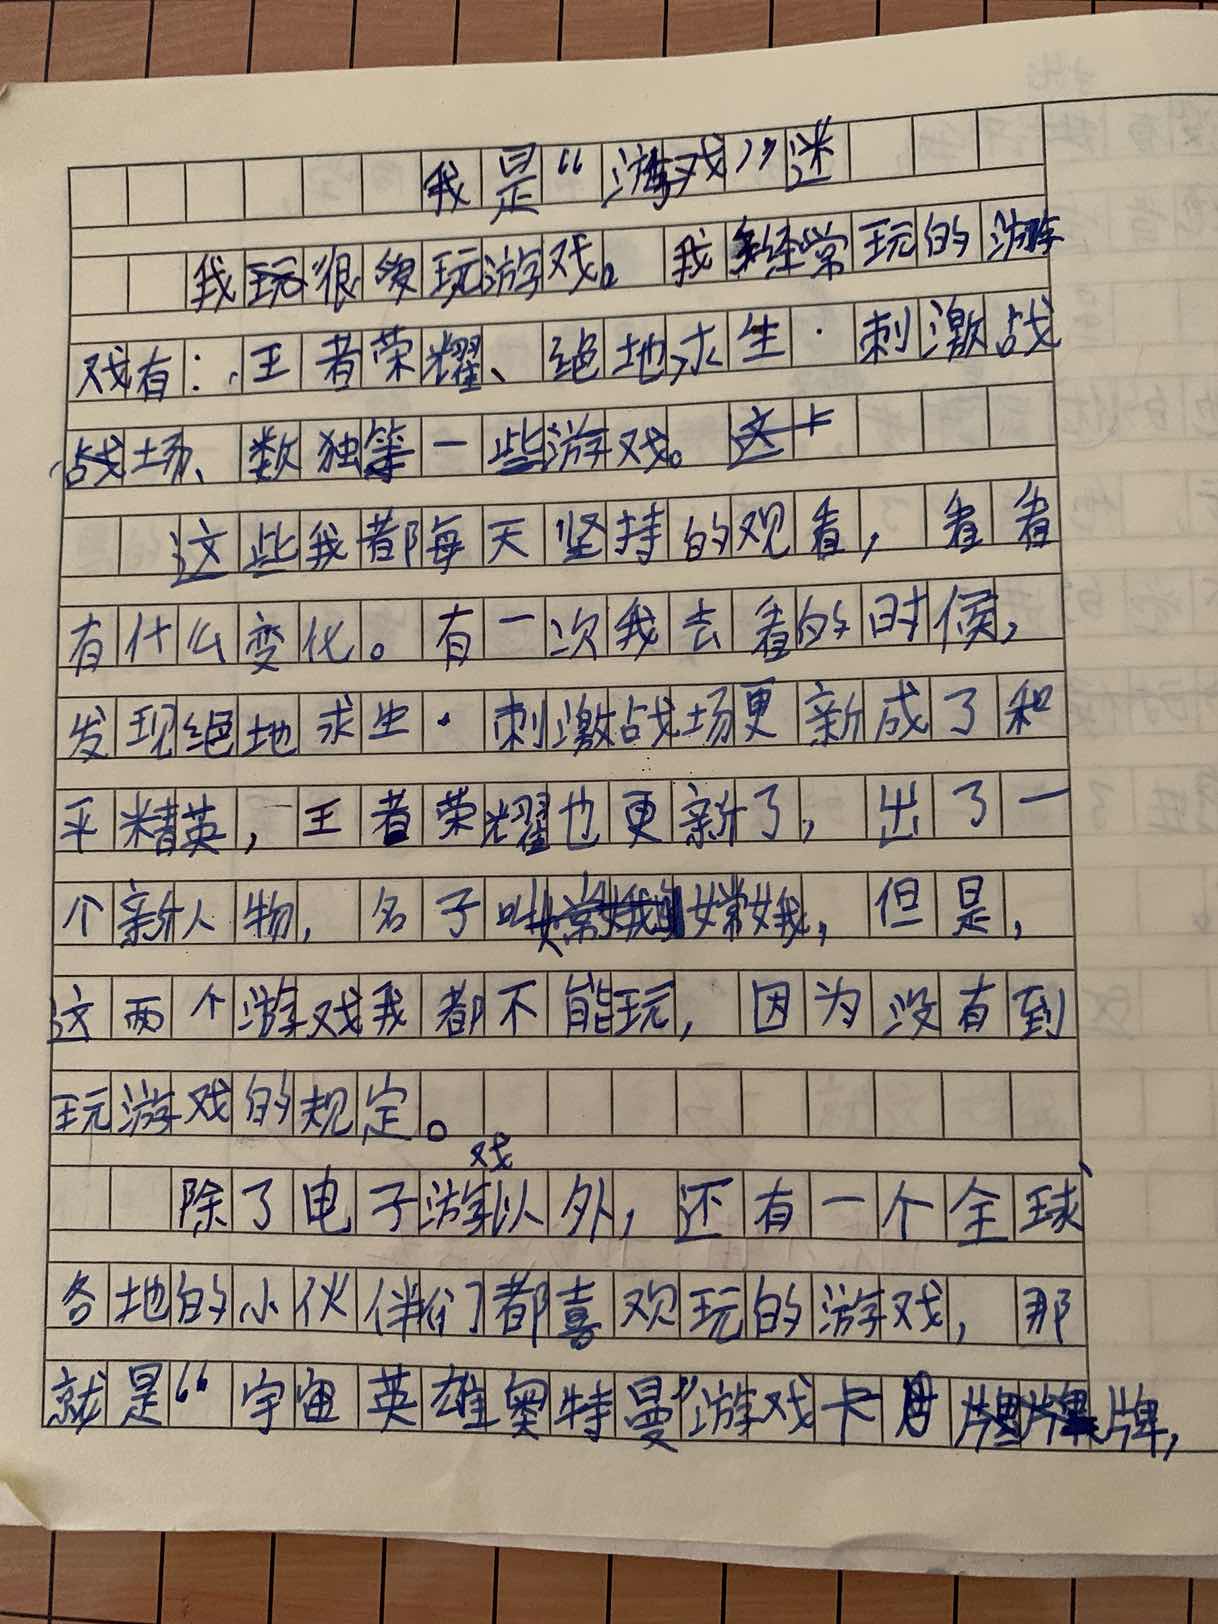 我是“游戏”迷
我玩很爱玩游戏。我经常玩的游
戏有：王者荣耀、绝地求生·刺激战
战场、数独等一些游戏。这卡
这些我都每天坚持的观看，看看
有什么变化。有一次我去看的时候，
发现绝地求生·刺激战场更新成了和
平精英，王者荣耀也更新了，出了一
个新人物，名子叫嫦娥，但是，
这两个游戏我都不能玩，因为没有到
玩游戏的规定。
除了电子游戏以外，还有一个全球
各地的小伙伴们都喜欢玩的游戏，那
就是“宇宙英雄奥特曼”游戏卡牌，